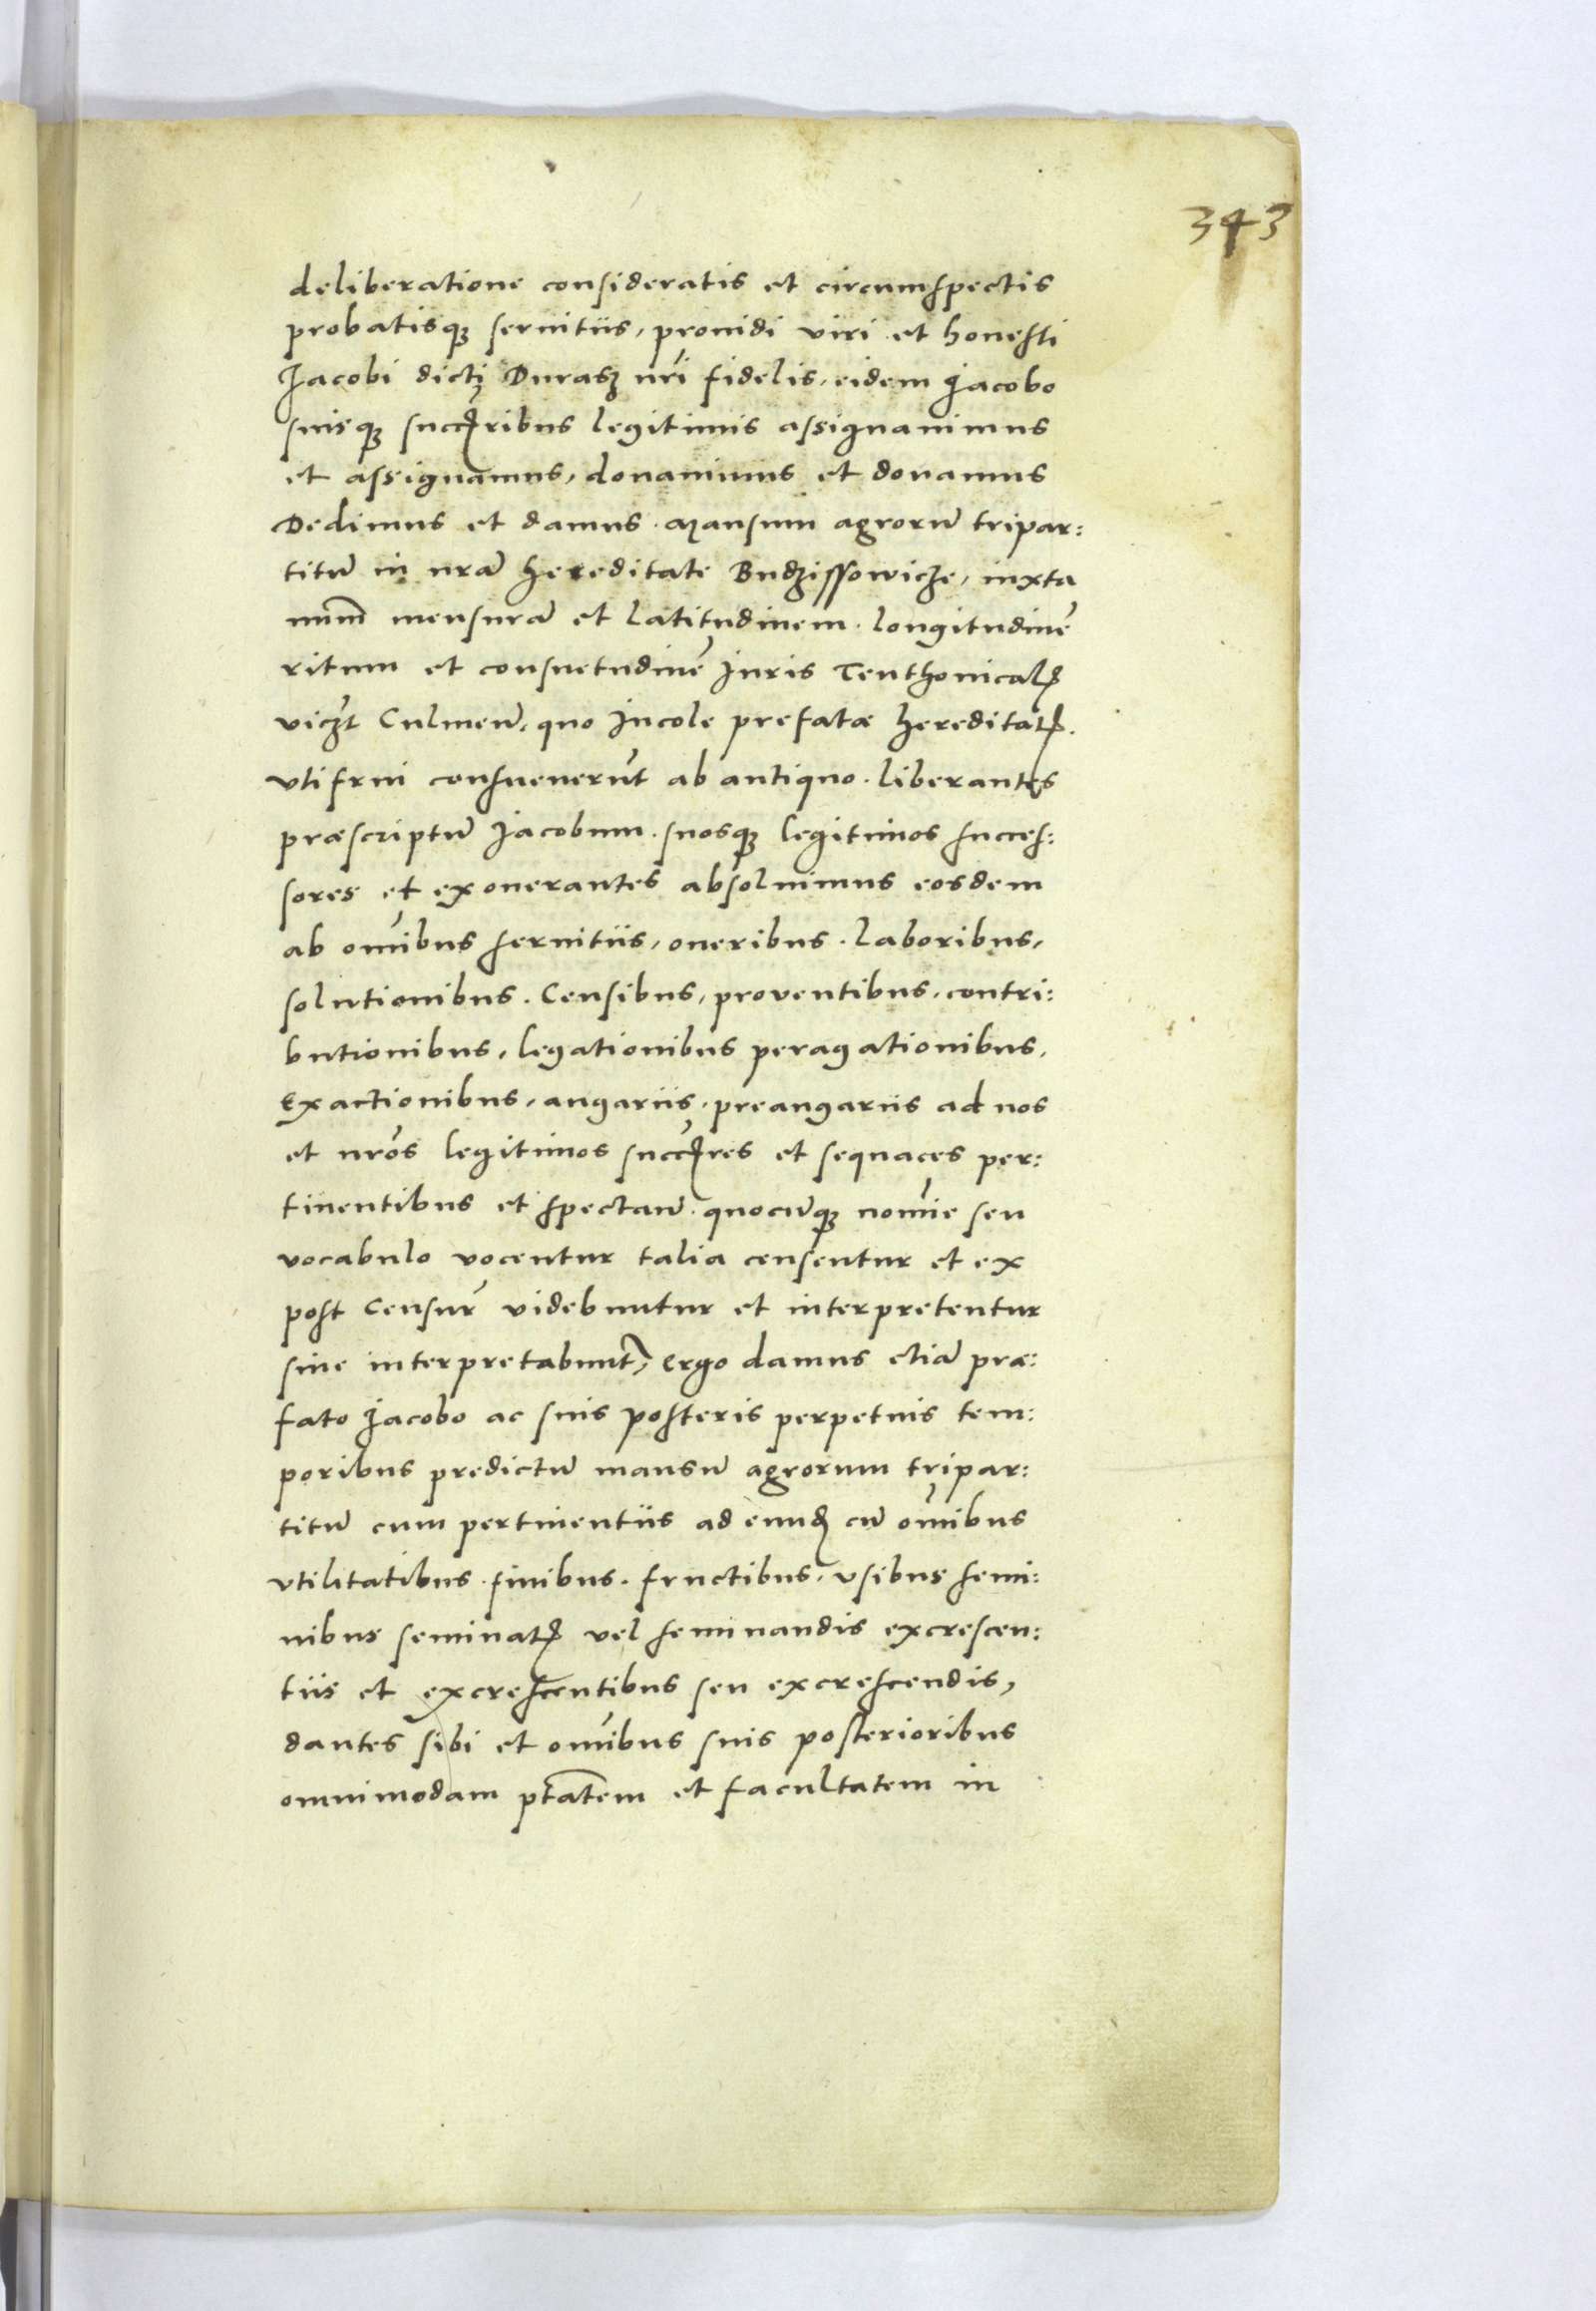 343
deliberatione consideratis et circumspectis
probatisqꝫ seruitiis, prouidi viri et honesti
Jacobi dicti Durasz nr̃i fidelis, eidem Jacobo
suisqꝫ succꝭribus legitimis assignauimus
et assignamus, donauimus et donamus
Dedimus et damus. Mansum agrorũ tripar:
titũ in nr̃a hereditate Budzissowicze, iuxta
mensurã et latitudinem. longitudinẽ
ritum et consuetudinẽ Juris Teuthonicalꝭ
viczt Culmeñ. quo Incole prefatæ hereditatꝭ.
vtifrui consueuerũt ab antiquo. liberantes
præscriptũ Jacobum. suosqꝫ legitimos succes:
sores et exonerantes absoluimus eosdem
ab om̃ibus seruitiis, oneribus. laboribus,
solutionibus. Censibus, proventibus, contri:
butionibus, legationibus peragationibus,
Exactionibus, angariis, preangariis ad nos
et nr̃os legitimos succꝭres et sequaces per:
tinentibus et spectañ. quocũqꝫ nom̃ie seu
vocabulo vocentur talia censentur et ex
post Censur̃ videbuntur et interpretentur
siue interpretabunt̃, Ergo damus etiã præ:
fato Jacobo ac suis posteris perpetuis tem:
poribus predictũ mansũ agrorum tripar:
titũ cum pertinentiis ad eundꝭ cũ om̃ibus
vtilitatibus. finibus. fructibus, vsibus semi:
nibus seminatꝭ vel seminandis excrescen:
tiis et excrescentibus seu excrescendis,
dantes sibi et om̃ibus suis posterioribus
omnimodam ptãtem et facultatem in